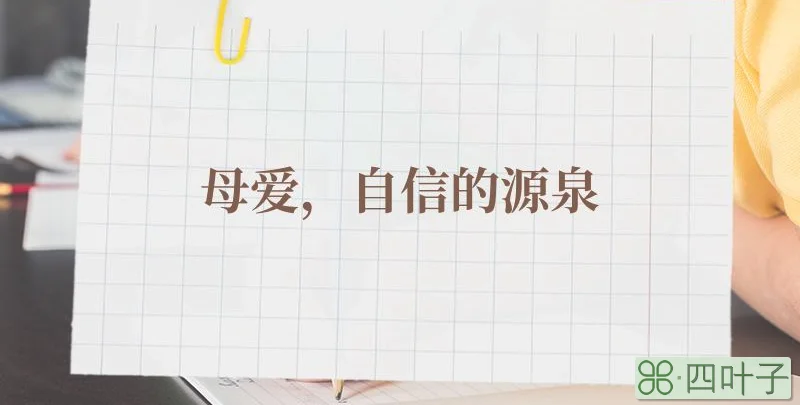 母爱，自信的源泉
四叶子